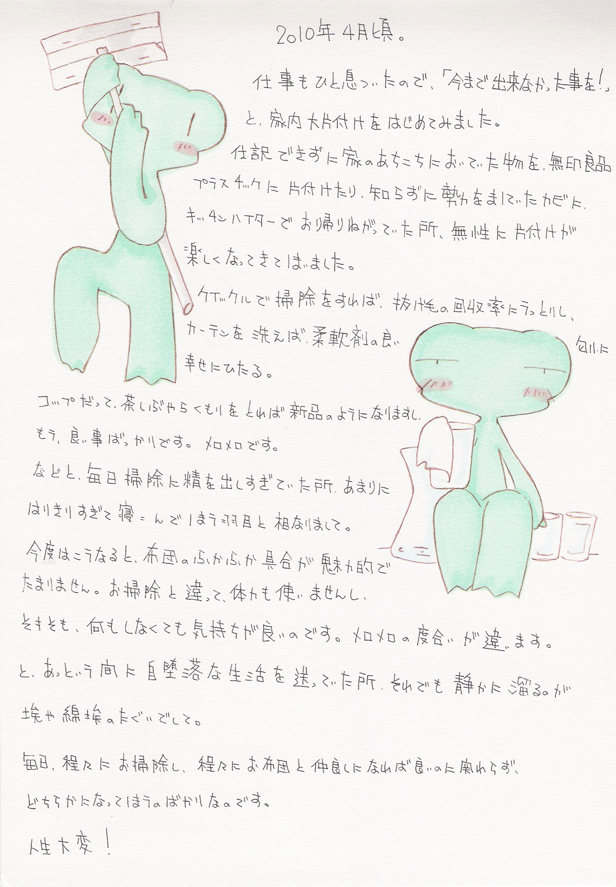 2010年4月頃。
仕事もひと息ついたので、「今まで出来なかった事を!」
と、家内大片付けをはじめてみました。
仕訳できずに家のあちこちにおいていた物を、無印良品
プラスチックに片付けたり、知らずに勢力をましていたカビに、
キッチンハイターでお帰りねがっていた所、無性に片付けが
楽しくなってきてしまいました。
クイックルで掃除をすれば、抜け毛の回収率にうっとりし、
カーテンを洗えば、柔軟剤の良い匂いに
幸せにひたる。
コップだって、茶しぶやらくもりをとれば新品のようになりますし、
もう、良い事ばっかりです。メロメロです。
などと、毎日掃除に精を出しすぎていた所、あまりに
はりきりすぎて寝こんでしまう羽目と相なりまして。
今度はこうなると、布団のふかふか具合が魅力的で
たまりません。お掃除と違って、体力も使いませんし、
そもそも、何もしなくても気持ちが良いのです。メロメロの度合いが違います。
と、あっという間に自堕落な生活を送っていた所、それでも静かに溜るのが
埃や綿埃のたぐいでして。
毎日、程々にお掃除し、程々にお布団と仲良しになれば良いのに
どちらかになってしまうのばかりなのです。
人生大変!